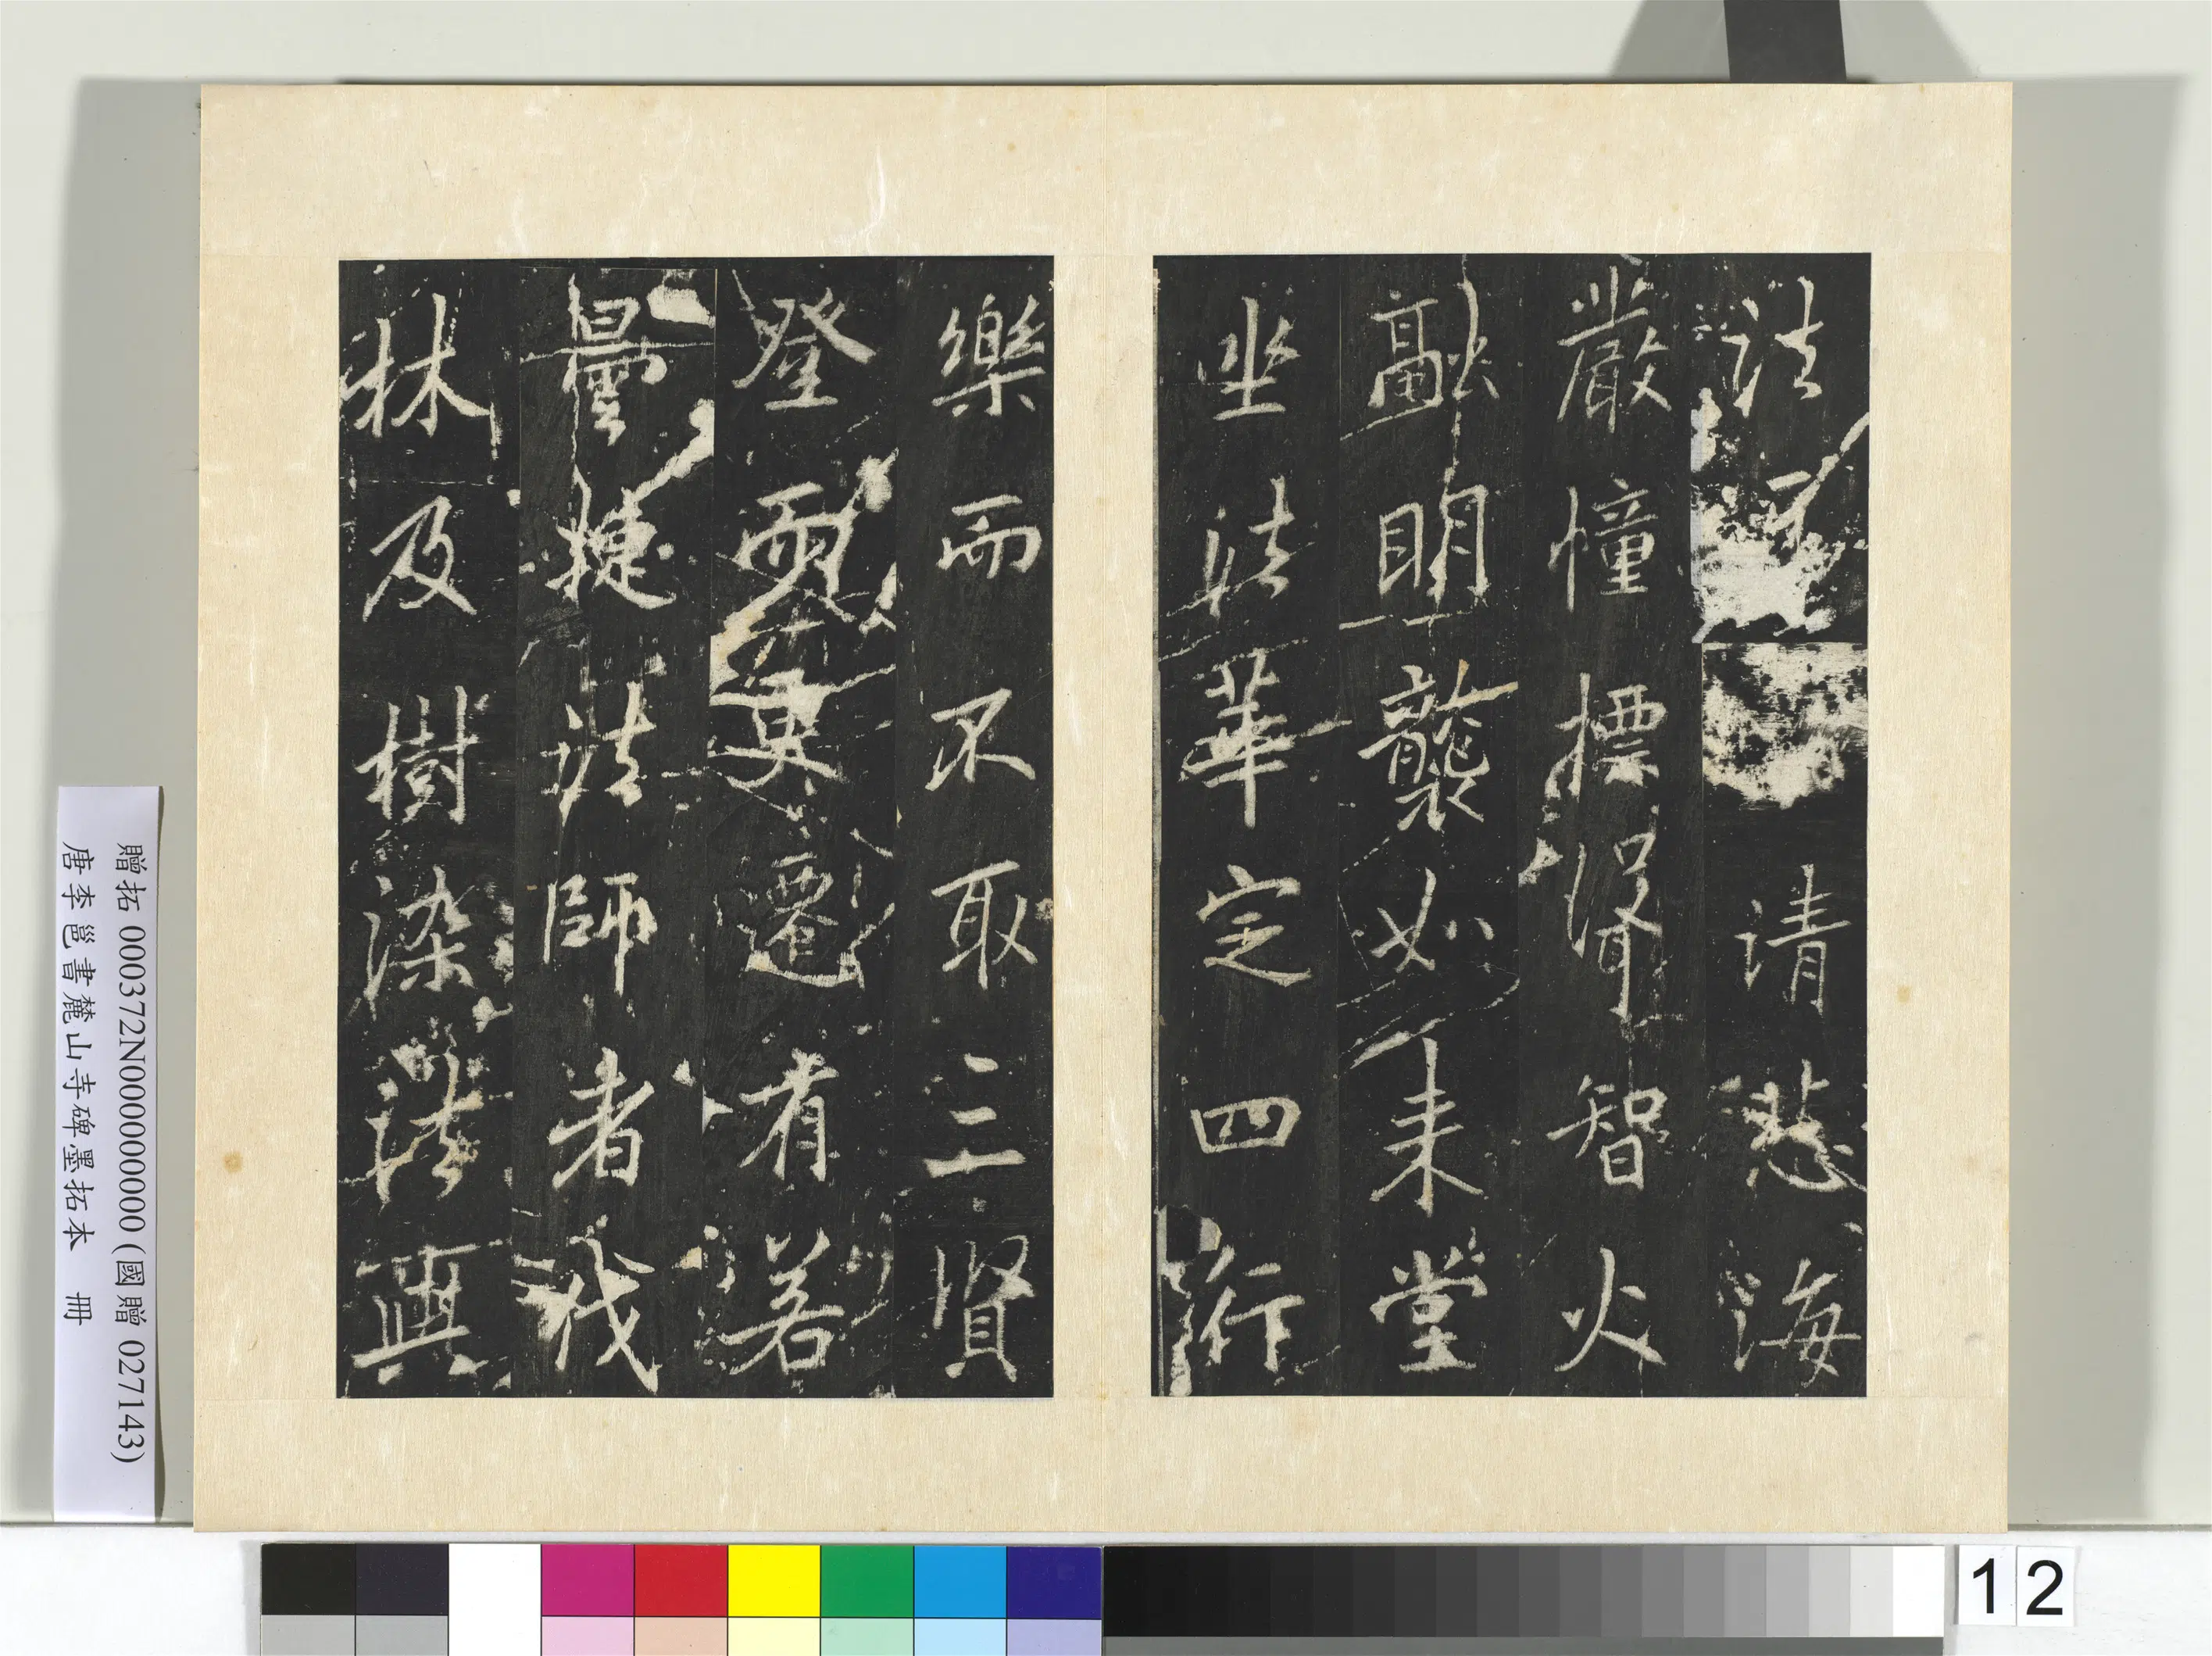 法請悲海
嚴幢標智火
融明襲如来堂
坐法華定四行
樂而不取三賢
登而莫遷有若
曇捷法師者
林及樹染法與
贈拓 000372N000000000 (國贈 027143)
唐李邕書麓山寺碑墨拓本 冊
12